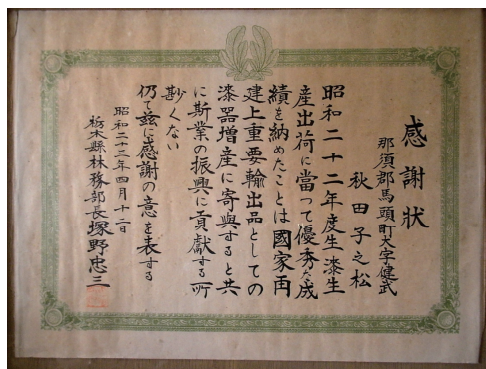 感謝状
那須郡馬頭町大字健武
秋田子之松
昭和二十二年度生漆生
産出荷に当って優秀な成
績を納めたことは國家再
建上重要輸出品としての
漆器増産に寄與すると共
に斯業の振興に貢献する所
尠くない
仍て茲に感謝の意を表する
昭和二十三年四月十二日
栃木縣林務部長塚野忠三